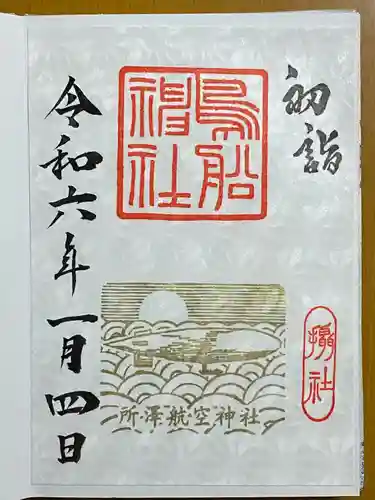 初詣
鳥船
神社
所澤航空神社
令和六年一月四日